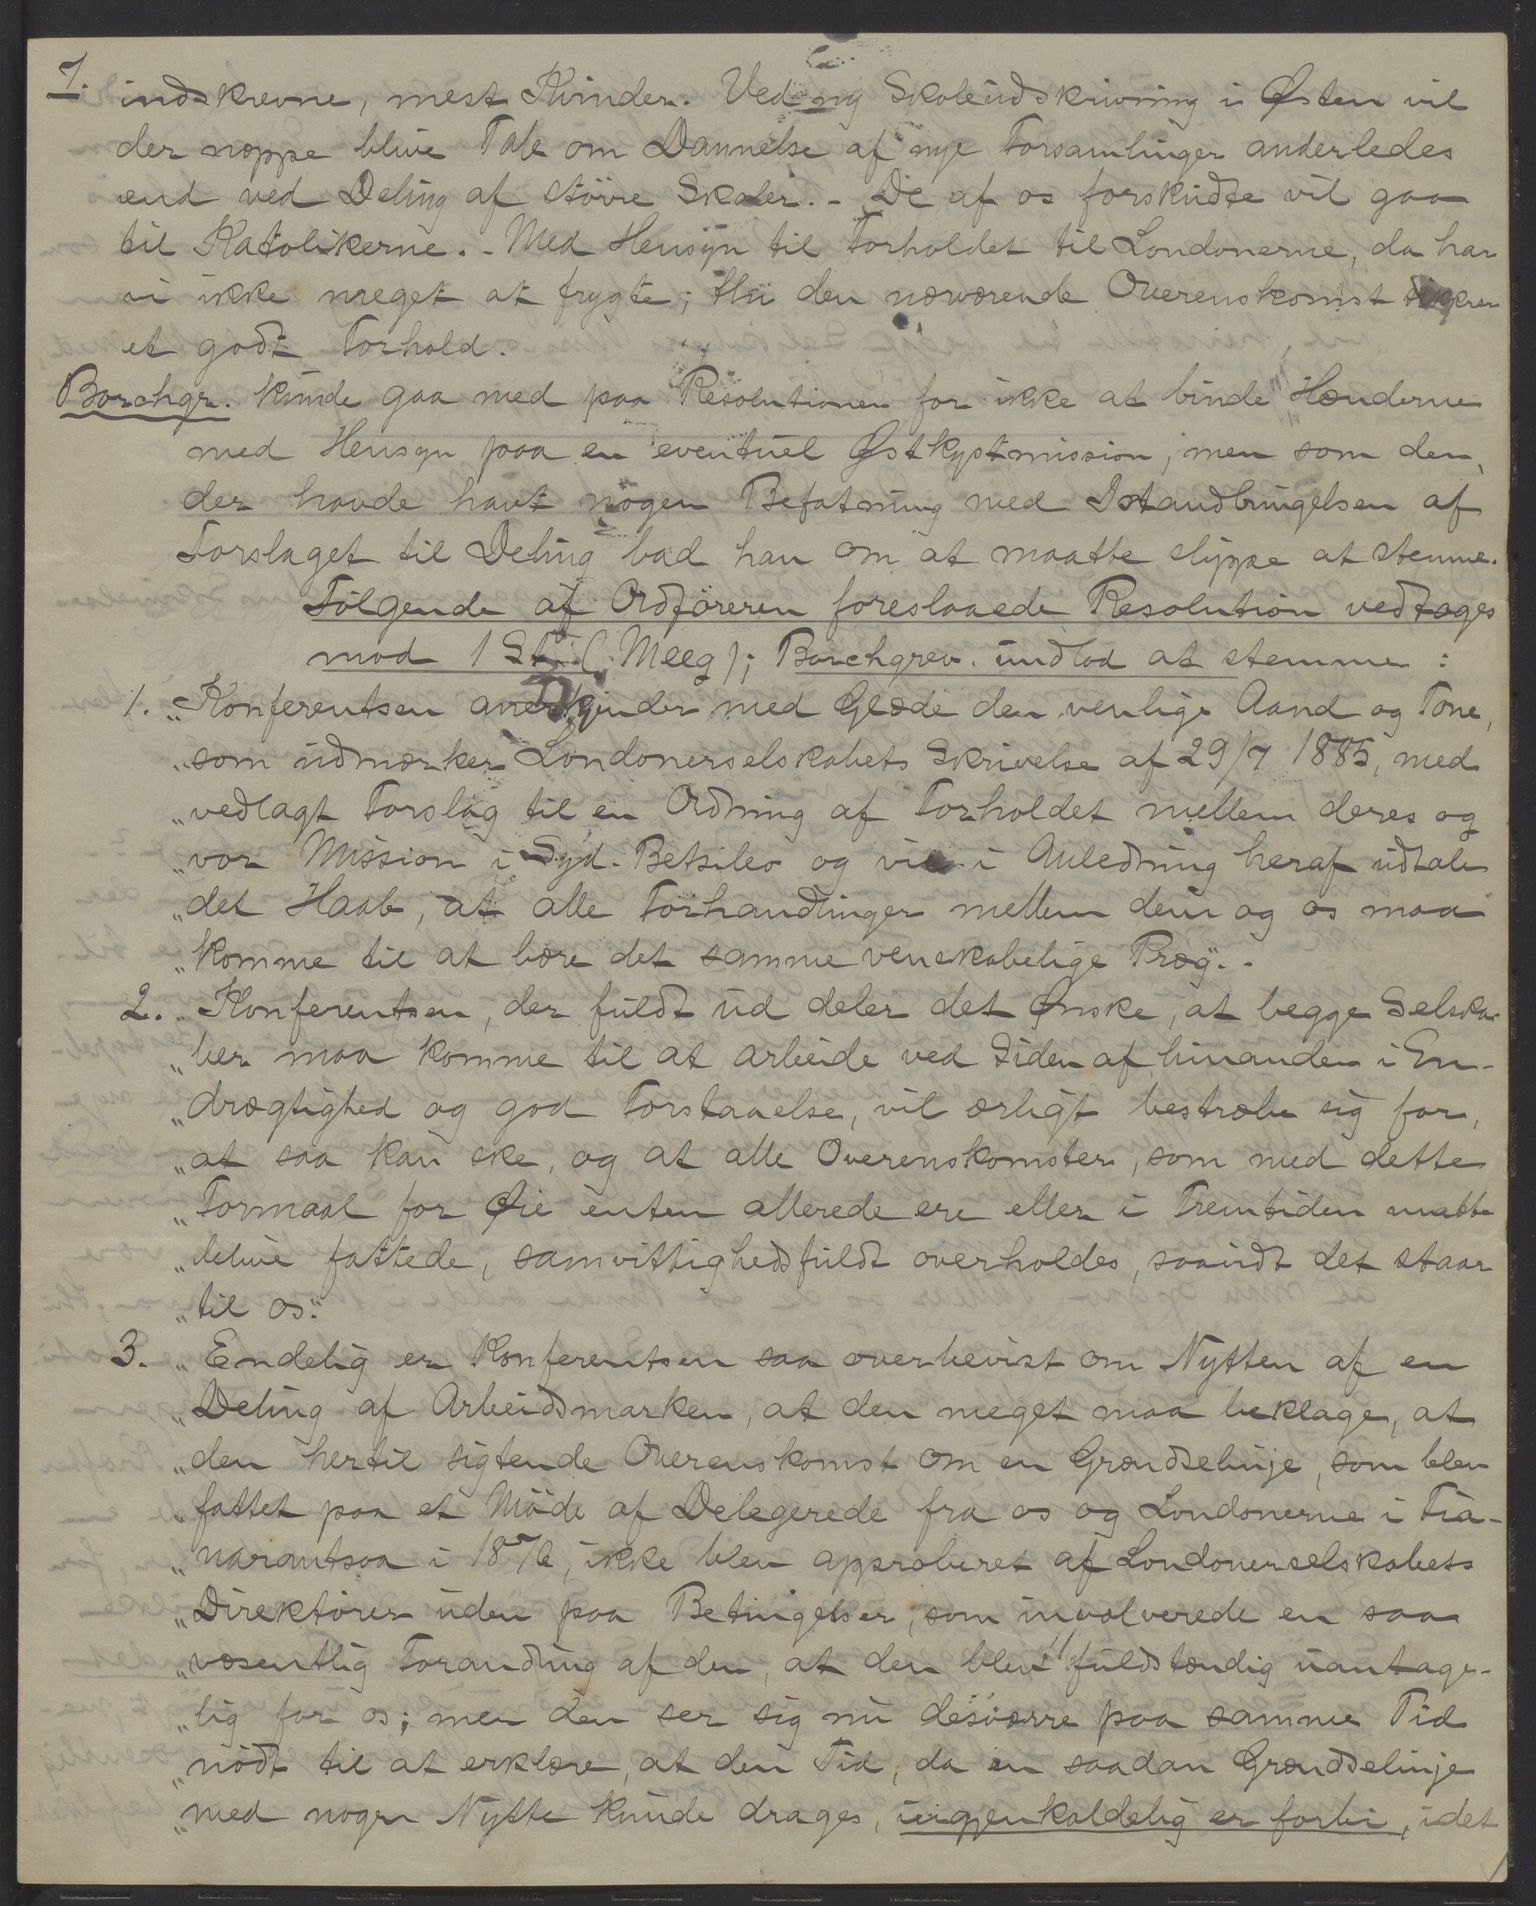 7. indskrevne, mest Kvinder. Ved ny Skoleudskrivning i Østen vil
der neppe blive Tale om Dannelse af nye Forsamlinger anderledes
end ved Deling af större Skoler. - De af os forskudte vil gaa
til Katolikerne. - Med Hensyn til Forholdet til Londonerne, da har
vi ikke meget at frygte; thi den nærværende Overenskomst sikkrer
et godt Forhold.
Borchgr. kunde gaa med paa Resolutionen for ikke at binde Hænderne
med Hensyn paa en eventuel Østkystmission, men som den,
der havde havt nogen Befatning med Istandbringelsen af
Forslaget til Deling bad han om at maatte slippe at stemme.
Fölgende af Ordföreren foreslaaede Resolution vedtages
mod 1 St. (Meeg); Borchgrev. undlod at stemme:
1. „Konferentsen anerkjender med Glæde den venlige Aand og Tone,
„som udmærker Londonerselskabets Skrivelse af 29/7 1885, med
„vedlagt Forslag til en Ordning af Forholdet mellem deres og
„vor Mission i Syd-Betsileo og vil i Anledning heraf udtale
„det Haab, at alle Forhandlinger mellem dem og os maa
„komme til at bære det samme venskabelige Præg". -
2. „Konferentsen, der fuldt ud deler det Ønske, at begge Selska-
„ber maa komme til at arbeide ved Siden af hinanden i En-
„drægtighed og god Forstaaelse, vil ærligt bestræbe sig for,
„at saa kan ske, og at alle Overenskomster, som med dette
„Formaal for Øie enten allerede ere eller i Fremtiden maatte
„blive fattede, samvittighedsfuldt overholdes, saavidt det staar
„til os."
3. „Endelig er Konferentsen saa overbevist om Nytten af en
„Deling af Arbeidsmarken, at den meget maa beklage, at
„den hertil sigtende Overenskomst om en Grændselinje, som blev
„fattet paa et Möde af Delegerede fra os og Londonerne i Fia-
„narantsoa i 1876, ikke blev approberet af Londonerselskabets
„Direktörer uden paa Betingelser, som involverede en saa
„væsentlig Forandring af den, at den blev fuldstændig uantage-
„lig for os; men den ser sig nu desværre paa samme Tid
„nödt til at erklære, at den Tid, da en saadan Grændselinje
„med nogen Nytte kunde drages, uigjenkaldelig er forbi, idet